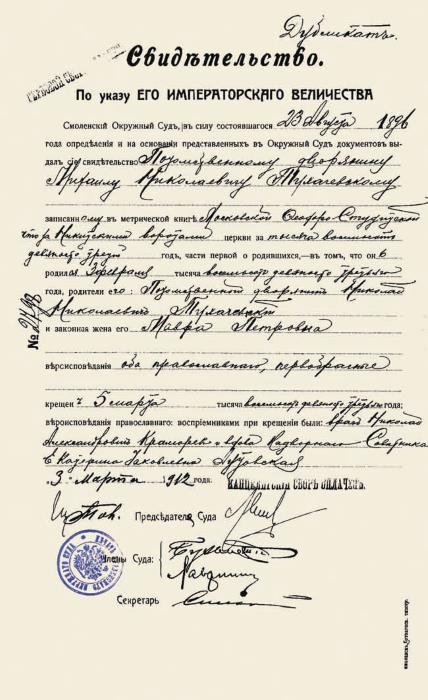 Дубликатъ.
Свидѣтельство.
По указу ЕГО ИМПЕРАТОРСКАГО ВЕЛИЧЕСТВА
Смоленскій Окружный Судъ, въ силу состоявшагося 23 Августа 1896
года опредѣленія и на основаніи представленныхъ въ Окружный Судъ документовъ вы-
далъ сіе свидѣтельство Потомственному дворянину
Михаилу Николаевичу Тухачевскому
записанному въ метрической книгѣ Московской Ѳеодоро-Студитской
что за Никитскими воротами церкви за тысяча восемьсотъ
девяносто третій годъ, части первой о родившихся,—въ томъ, что онъ
родился 3 февраля тысяча восемьсотъ девяносто третьяго
года, родители его: Потомственный дворянинъ Николай
Николаевичъ Тухачевскій
и законная жена его Мавра Петровна
№ 2798
вѣроисповѣданія оба православнаго первобрачные
крещенъ 5 марта тысяча восемьсотъ девяносто третьяго года;
вѣроисповѣданія православнаго: воспріемниками при крещеніи были: врачъ Николай
Александровичъ и вдова Надворнаго Совѣтника
Яковлевна
3 Марта 1912 года. КАНЦЕЛЯРСКІЙ СБОРЪ ОПЛАЧЕНЪ.
Предсѣдателя Суда
Члены Суда:
Секретарь